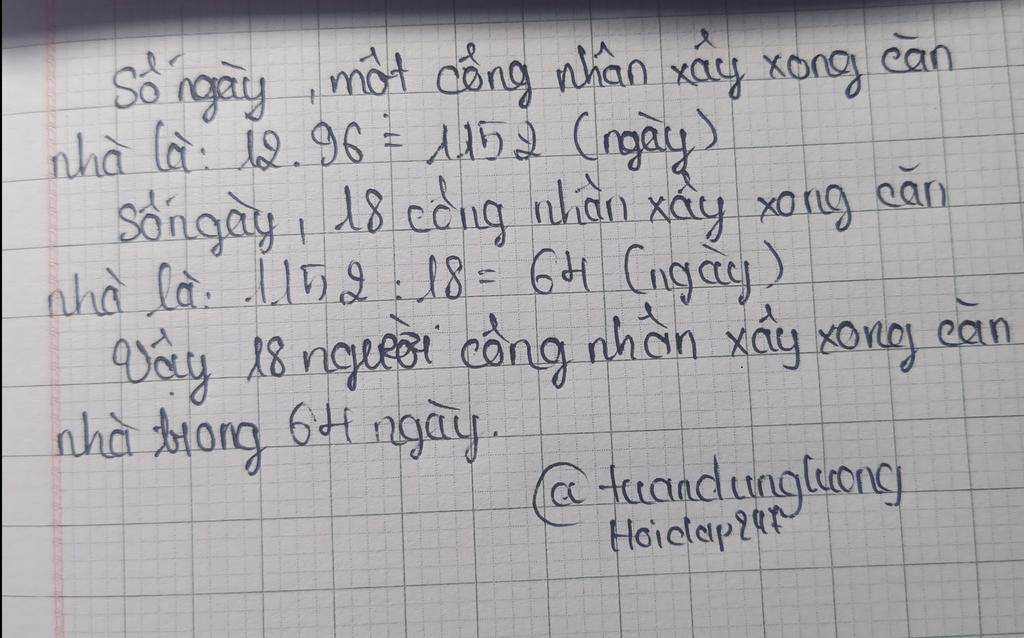 Số ngày, một công nhân xây xong căn
nhà là: 12.96 = 1152 (ngày)
Số ngày, 18 công nhân xây xong căn
nhà là: 1152 : 18 = 64 (ngày)
Vậy 18 người công nhân xây xong căn
nhà trong 64 ngày.
@tuandungluong
Hoidap247